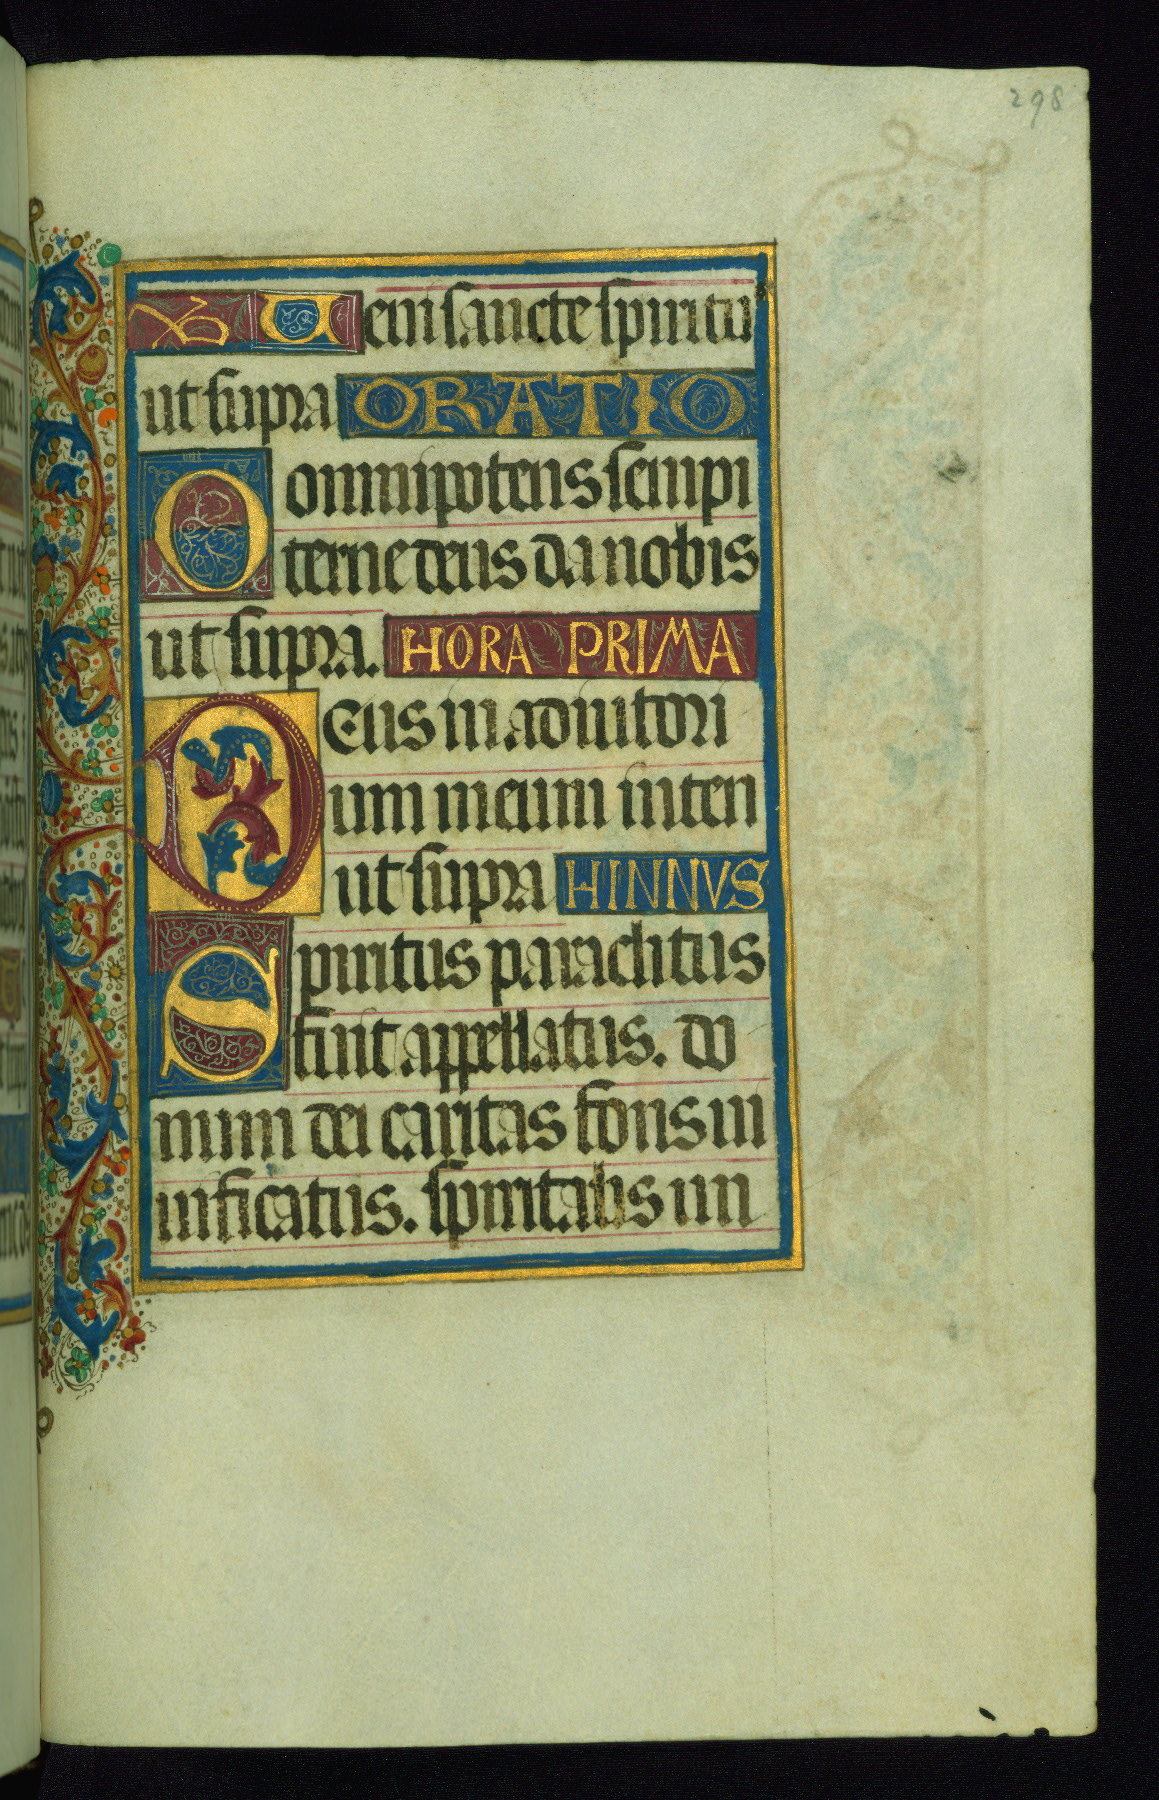 298
Veni sancte spiritus
ut supra ORATIO
Omnipotens sempi
terne deus da nobis
ut supra. HORA PRIMA
Deus in adiutori
um meum inten
ut supra HINNVS
Spiritus paraclitus
fuit appellatus. do
num dei caritas fons ui
uificatus. spiritalis un